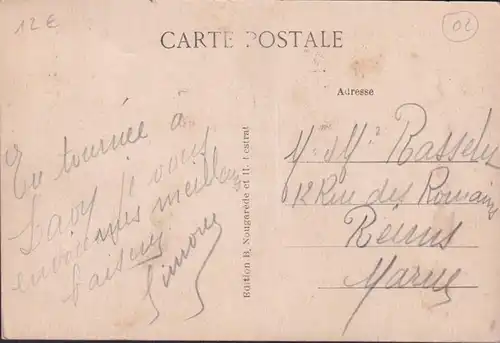 12€
02
CARTE POSTALE
Adresse
En tournée à
Laon je vous
envoie mes meilleurs
baisers
Simone
Edition B. Nougarède et H. Lestrat
M. Mme Rasselet
12 Rue des Romains
Reims
Marne